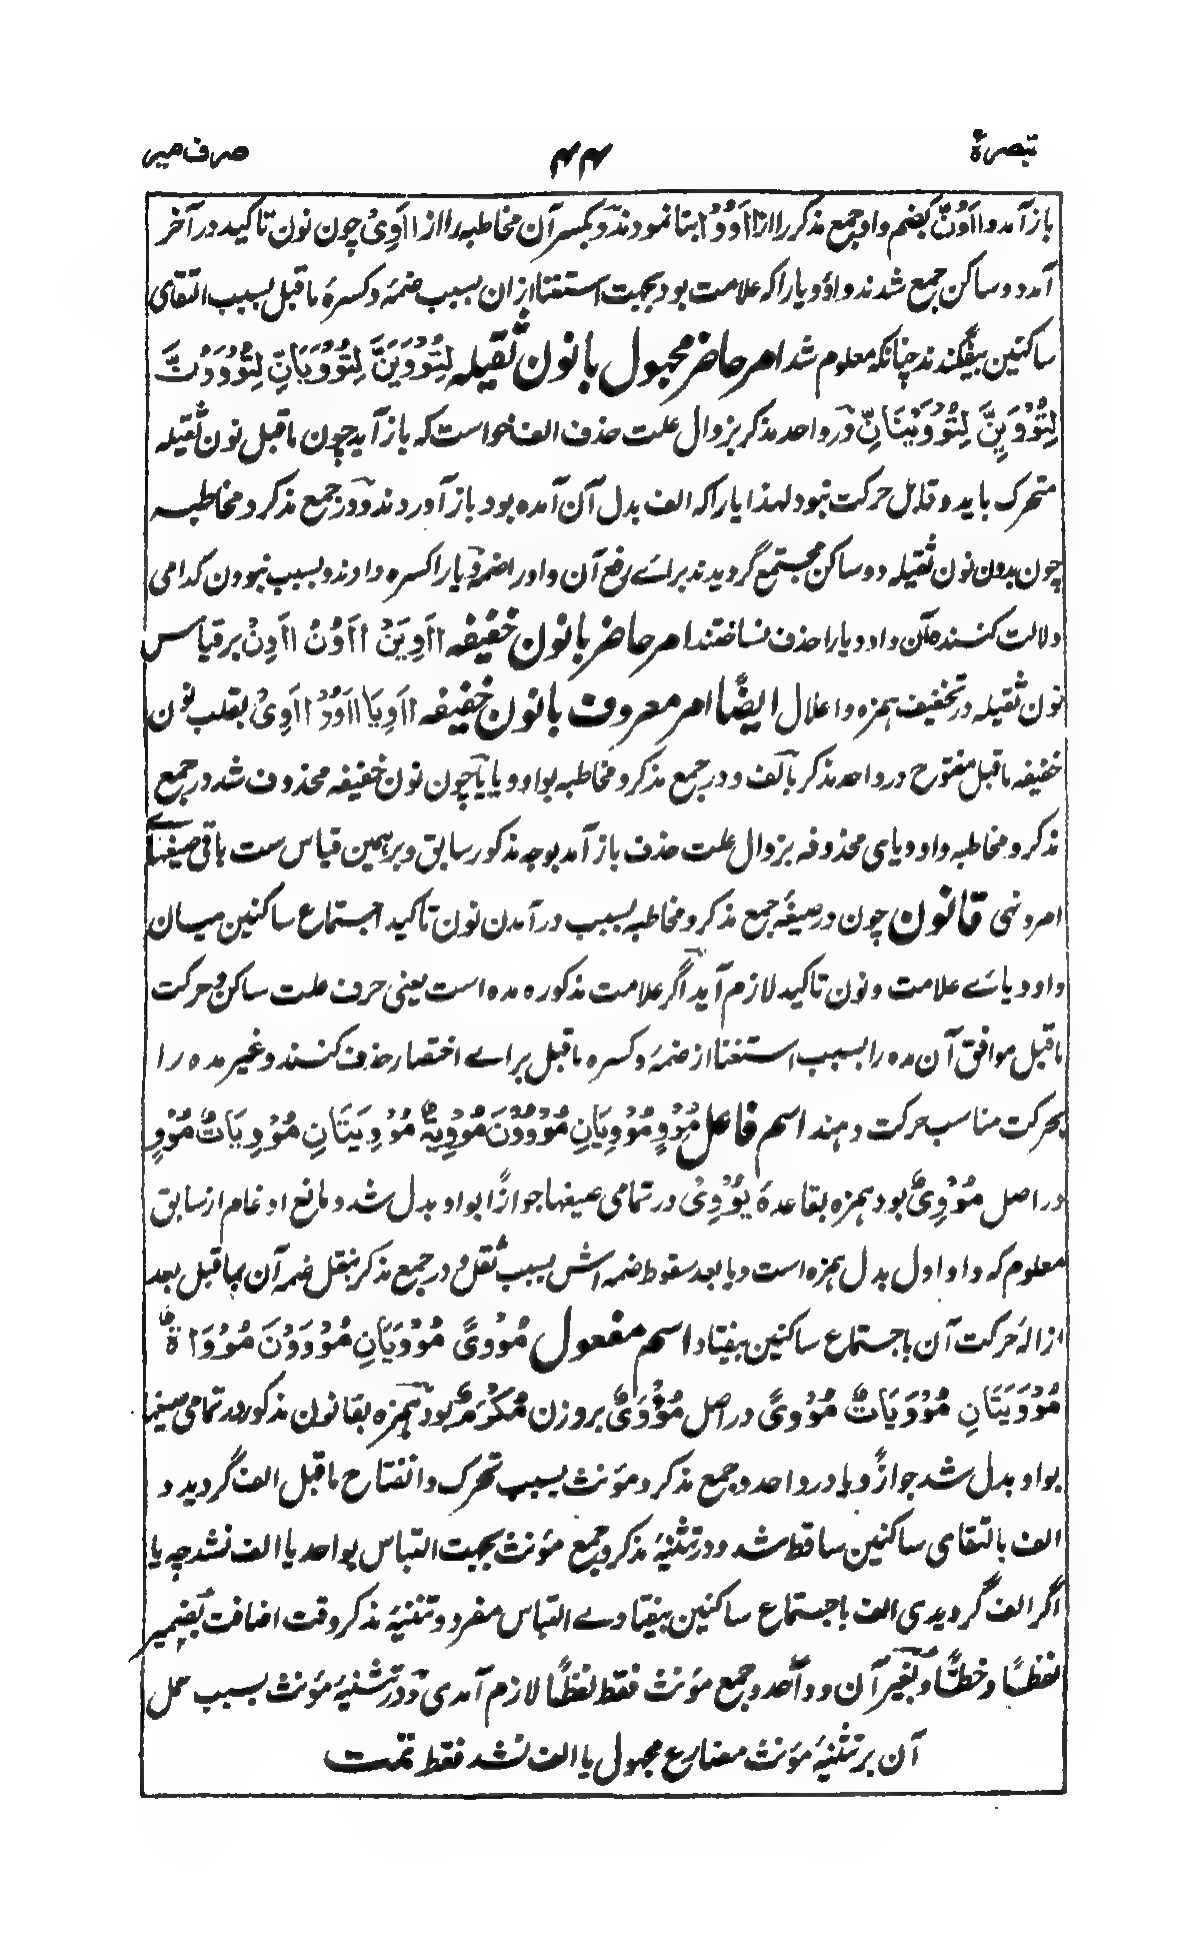 تبصرة ۴۴ صرف میر
باز آمد و ااَوُنَّ بضم واو جمع مذکر را از ااَوُوْا بنا نمودند و بکسر آن مخاطبه را از ااَوِیْ چون نون تاکید در آخر
آمد دو ساکن جمع شدند واو و یا را که علامت بود بجهت استغنا ازان بسبب ضمه و کسرهٔ ماقبل بسبب التقای
ساکنین بیفگندند چنانکه معلوم شد امر حاضر مجهول با نون ثقیله لِتُوْوَیَنَّ لِتُوْوَیَانِّ لِتُوْوَوُنَّ
لِتُوْوَیِنَّ لِتُوْوَیْنَانِّ در واحد مذکر بزوال علت حذف الف خواست که باز آید چون ماقبل نون ثقیله
متحرک باید و قابل حرکت نبود لهذا یا را که الف بدل آن آمده بود باز آوردند و در جمع مذکر و مخاطبه
چون بدون نون ثقیله دو ساکن مجتمع گردیدند براے رفع آن واو را ضمه و یا را کسره دادند و بسبب نبودن کدامی
دلالت کننده بر آن واو و یا را حذف نساختند امر حاضر با نون خفیفه ااَوِیَنْ ااَوُنْ ااَوِنْ بر قیاس
نون ثقیله در تخفیف همزه و اعلال ایضًا امر معروف با نون خفیفه ااَوِیَا ااَوُوْ ااَوِیْ بقلب نون
خفیفه ماقبل مفتوح در واحد مذکر بالف و در جمع مذکر و مخاطبه بواو و یا یا چون نون خفیفه محذوف شد در جمع
مذکر و مخاطبه واو و یای محذوفه بزوال علت حذف باز آمد بوجه مذکور سابق و برهمین قیاس ست باقی صیغهاے
امر و نهی قانون چون در صیغهٔ جمع مذکر و مخاطبه بسبب در آمدن نون تاکید اجتماع ساکنین میان
واو و یاے علامت و نون تاکید لازم آید اگر علامت مذکوره مده است یعنی حرف علت ساکن و حرکت
ماقبل موافق آن مده را بسبب استغنا از ضمه و کسره ماقبل براے اختصار حذف کنند و غیر مده را
بحرکت مناسب حرکت دهند اسم فاعل مُوْوٍ مُوْوِیَانِ مُوْوُوْنَ مُوْوِیَةٌ مُوْوِیَتَانِ مُوْوِیَاتٌ مُوْوٍ
در اصل مُوْوِیٌ بود همزه بقاعدهٔ یُوْوِیْ در تمامی صیغها جوازًا بواو بدل شد و مانع ادغام از سابق
معلوم که واو اول بدل همزه است و یا بعد سقوط ضمه اش بسبب ثقل و در جمع مذکر بنقل ضمه آن بماقبل بعد
ازالهٔ حرکت آن باجتماع ساکنین بیفتاد اسم مفعول مُوْوًی مُوْوَیَانِ مُوْوَوْنَ مُوْوَاةٌ
مُوْوَیَتَانِ مُوْوَیَاتٌ مُوْوًی در اصل مُؤْوَیٌ بروزن مُکْرَمٌ بود همزه بقانون مذکور در تمامی صیغها
بواو بدل شد جوازًا و یا در واحد و جمع مذکر و مؤنث بسبب تحرک و انفتاح ماقبل الف گردید و
الف بالتقای ساکنین ساقط شد و در تثنیهٔ مذکر و جمع مؤنث بجهت التباس بواحد یا الف نشد چه یا
اگر الف گردیدی الف باجتماع ساکنین بیفتادے التباس مفرد و تثنیهٔ مذکر وقت اضافت بضمیر
لفظًا و خطًّا و بغیر آن و واحد و جمع مؤنث فقط لفظًا لازم آمدی و در تثنیهٔ مؤنث بسبب حمل
آن بر تثنیهٔ مؤنث مضارع مجهول یا الف نشد فقط تمت